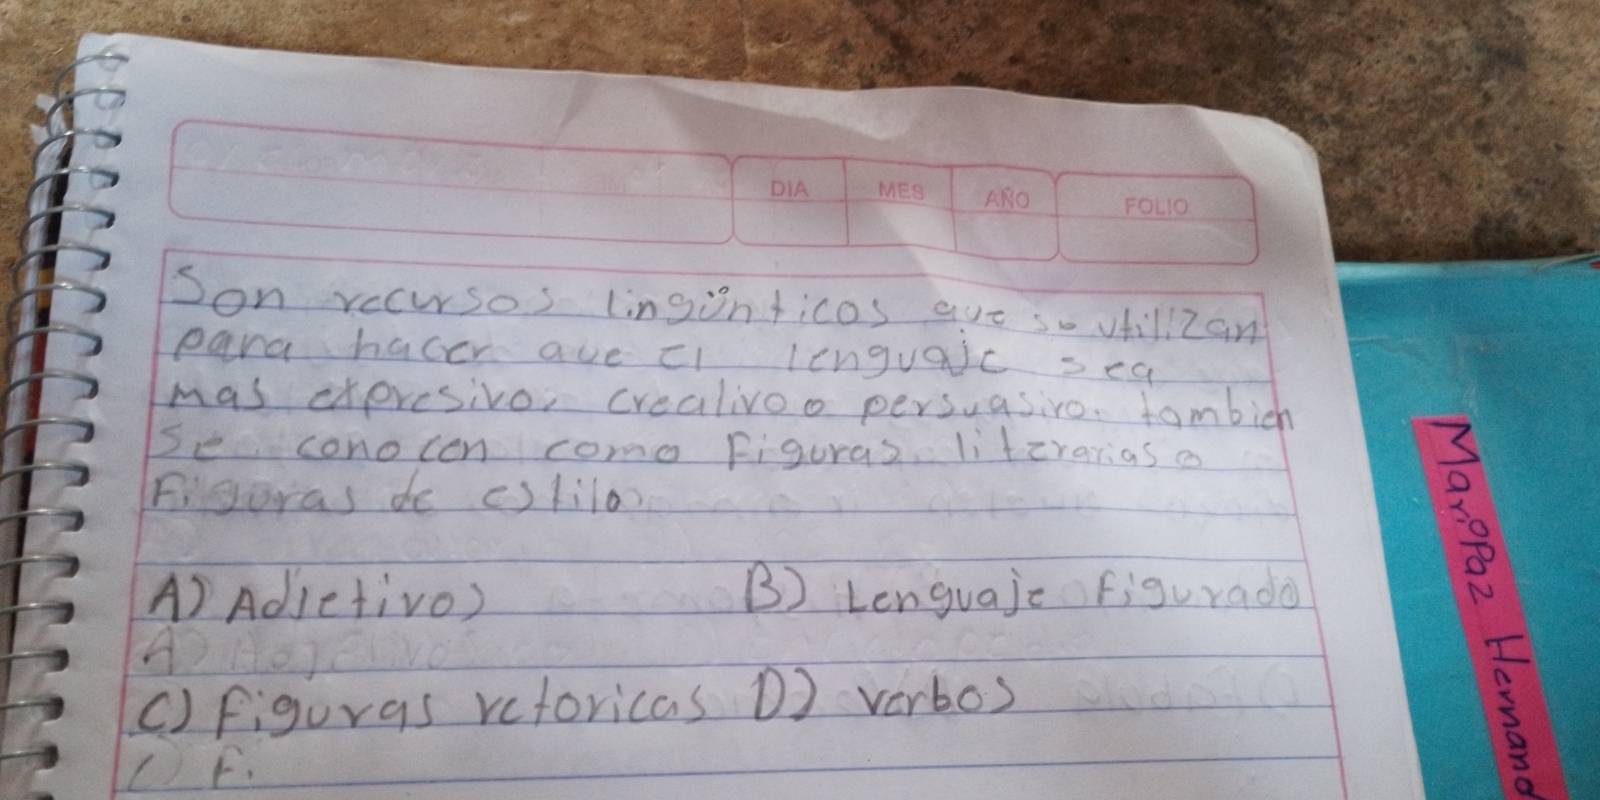 DIA MES AÑO FOLIO
Son recursos lingünticos que se utilizan
para hacer que el lenguaje sea
mas expresivo, crealivo o persuasivo. tambien
se conocen como Figuras literarias o
Figuras de estilo
A) Adjetivos B) Lenguaje Figurado
A) Adjetivos
C) Figuras retoricas D) verbos
C) F.
MariaPaz Hernand